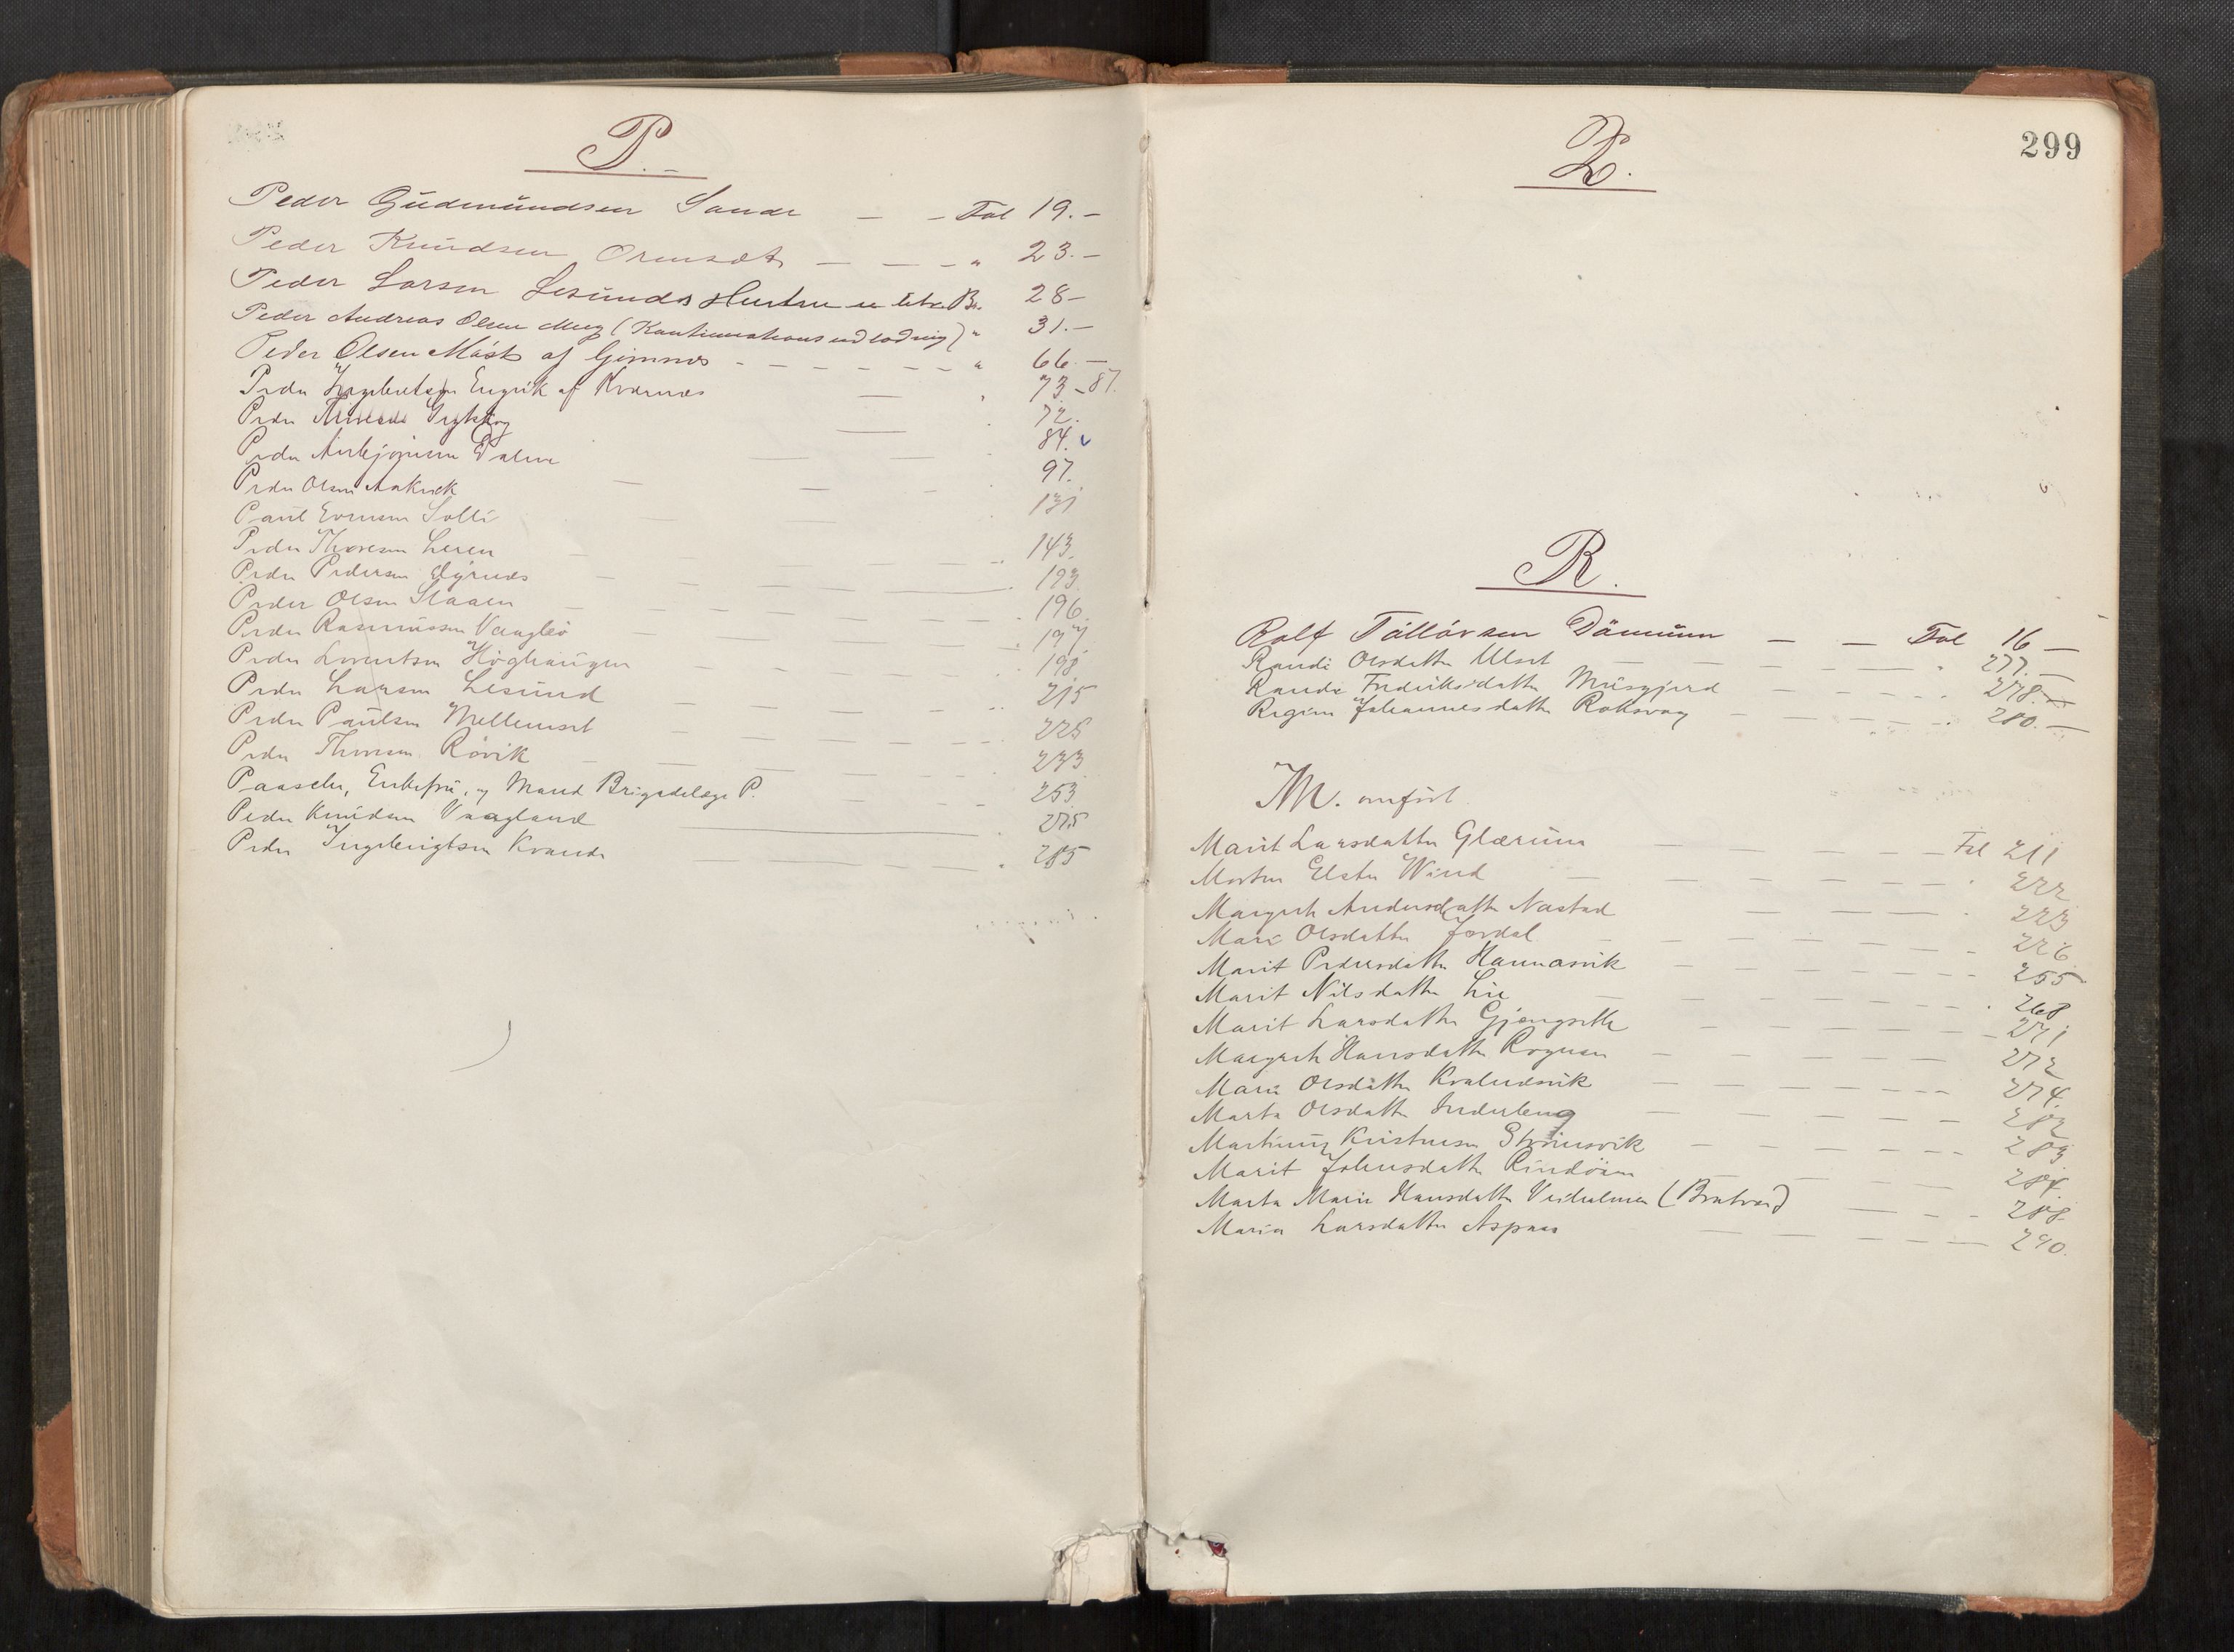 P.-
Peder Gudmundsen Sande — - Fol 19.-
Peder Knudsen Orensæt — — - " 23.-
Peder Larsen Lesunds Hustru B. 28-
Peder Andreas Olsen (Kautionistens udlodning) " 31.-
Peder Olsen Mast af Gimnes - - - - - - " 66.-
Peder Engvik af Kvernes — " 73-87.
Peder — 72.
Peder Dalen — — 84.
Peder Olsen Aakvik — — - 97.
Paul Evensen Solli 131
Peder Thoresen Leren 143.
Peder Pedersen Dyrnes — 193
Peder Olsen Staalen 196.
Peder Rasmussen Vaaglø 197
Peder Lorentsen Høghaugen 198
Peder Larsen Lesund 215
Peder Paulsen Mellemset 225
Peder Thoresen Røvik 233
Paasche, Enkefru, og Mand Brigadelæge P. 253
Peder Knudsen Vaagland 275
Peder Ingebrigtsen Kvande 285
299
Q.
R.
Rolf Tollovsen Dømmen — — Fol 16 —
Randi Olsdatter Ulset 277.—
Randi Fredriksdatter Musgjerd 278.—
Regine Johannesdatter Roksvaag 280.—
M. omført.
Marit Larsdatter Glærum Fol 211
Morten Elster Wind 222
Margrete Andersdatter Nastad 223
Mari Olsdatter Jordal 226
Marit Pedersdatter Hannasvik 255
Marit Nilsdatter Lie 268
Marit Larsdatter Gjengstle 271
Margrete Hansdatter Rognen 272
Mari Olsdatter Kvalvesvik 274
Marta Olsdatter Inderberg 282
Martinus Kristensen Strømsvik 283
Marit Johnsdatter Rindøien 284
Marta Marie Hansdatter Veiholmen (Bratvær) 288
Maria Larsdatter Aspaas 290.